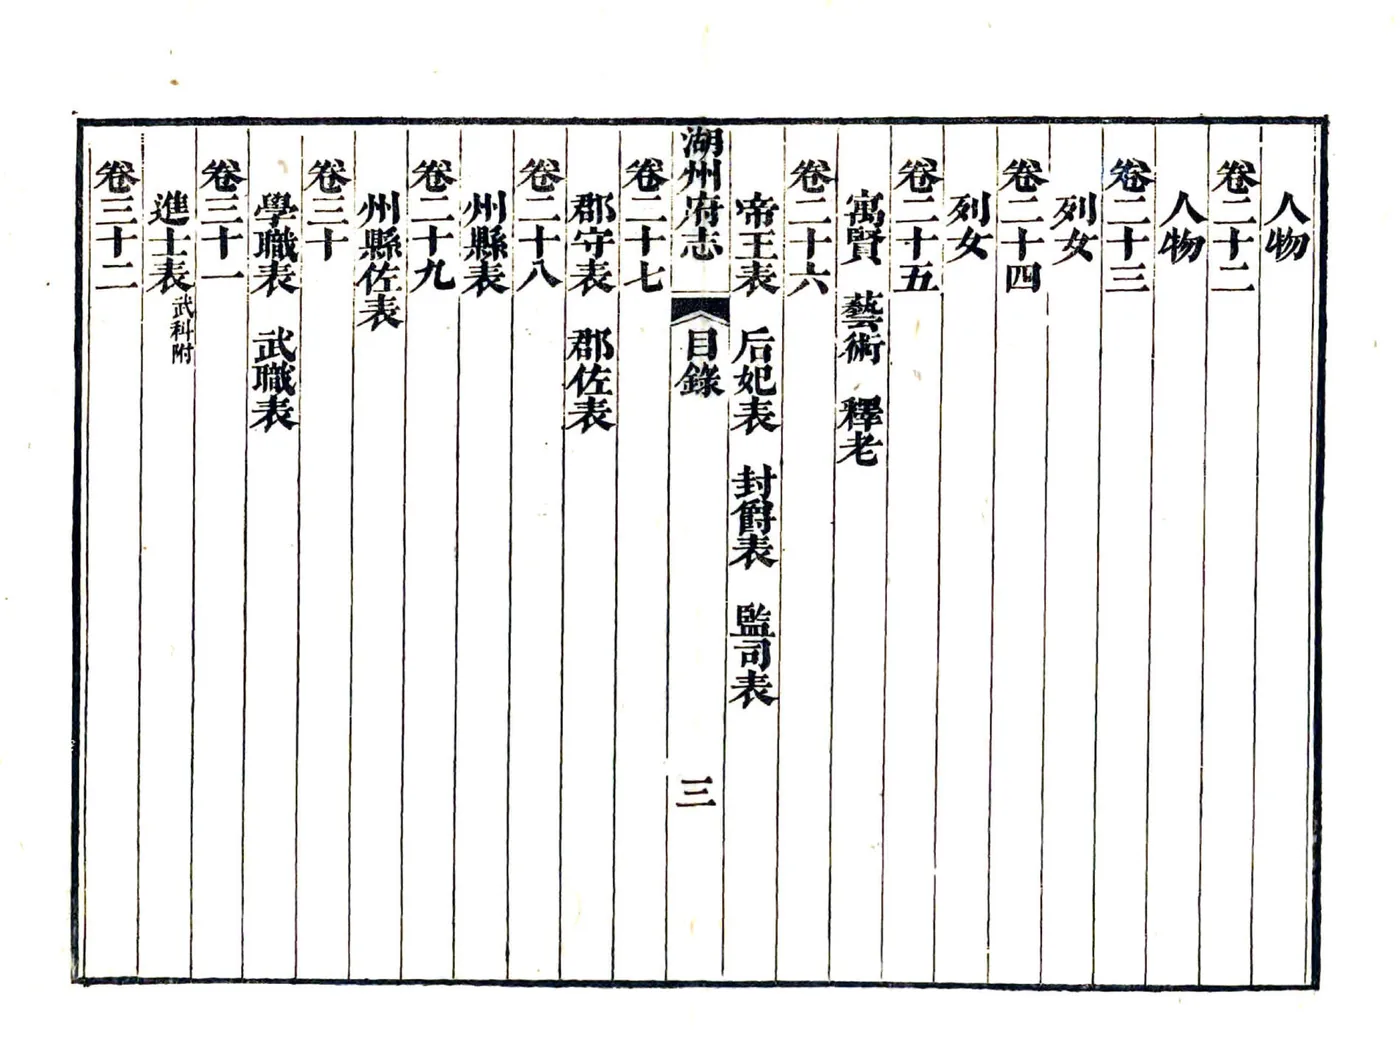 人物
卷二十二
人物
卷二十三
列女
卷二十四
列女
卷二十五
寓賢　藝術　釋老
卷二十六
帝王表　后妃表　封爵表　監司表
湖州府志　目錄　三
卷二十七
郡守表　郡佐表
卷二十八
州縣表
卷二十九
州縣佐表
卷三十
學職表　武職表
卷三十一
進士表武科附
卷三十二